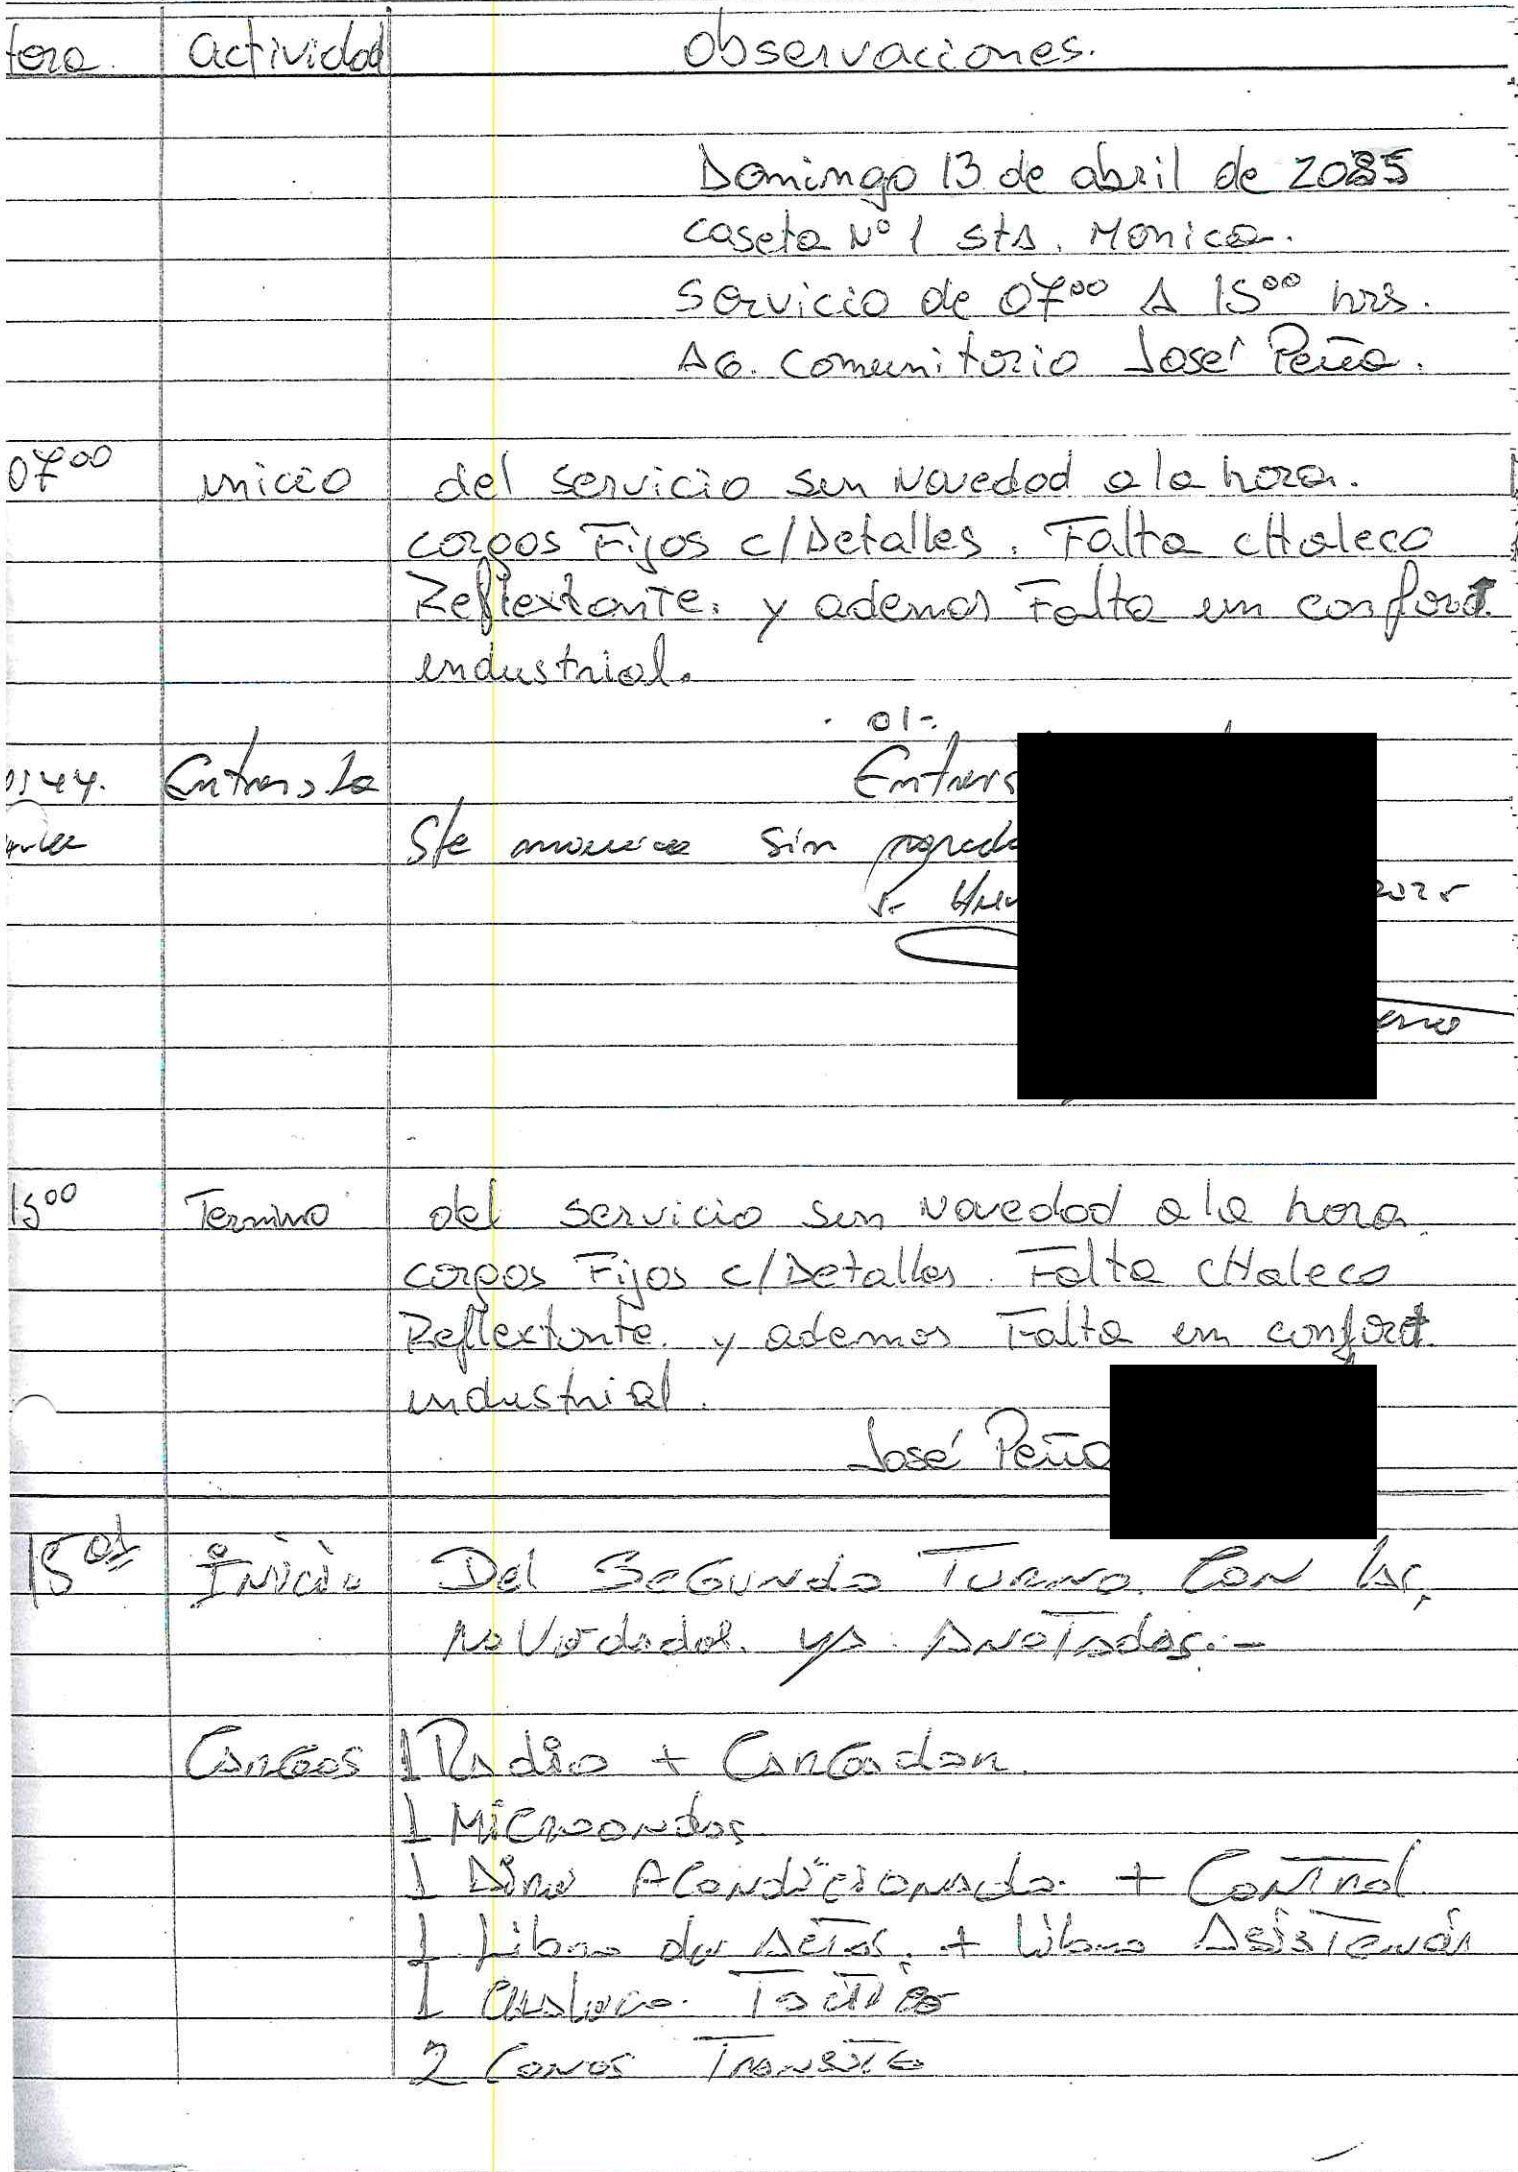 Hora. actividad observaciones.
Domingo 13 de abril de 2025
caseta N° 1 sta. Monica.
Servicio de 07⁰⁰ A 15⁰⁰ hrs.
AG. Comunitario José Peña.
07⁰⁰ inicio del servicio sin novedad a la hora.
cargos Fijos c/Detalles. Falta cHaleco
Reflextante. y ademas Falta un confort
industrial.
01-
Entre
Ste sin
2025
15⁰⁰ Termino del servicio sin novedad a la hora
cargos Fijos c/Detalles. Falta cHaleco
Reflextante. y ademas Falta un confort
industrial.
José Peña
15⁰¹ Inicio Del Segundo Turno Con las
Novedades ya Anotadas.-
Cargos 1 Radio + Cargador.
1 Microondas
1 Aire Acondicionado + Control
1 Libro de Actas. + Libro Asistencia
1 Chaleco Tactico
2 Conos Transito